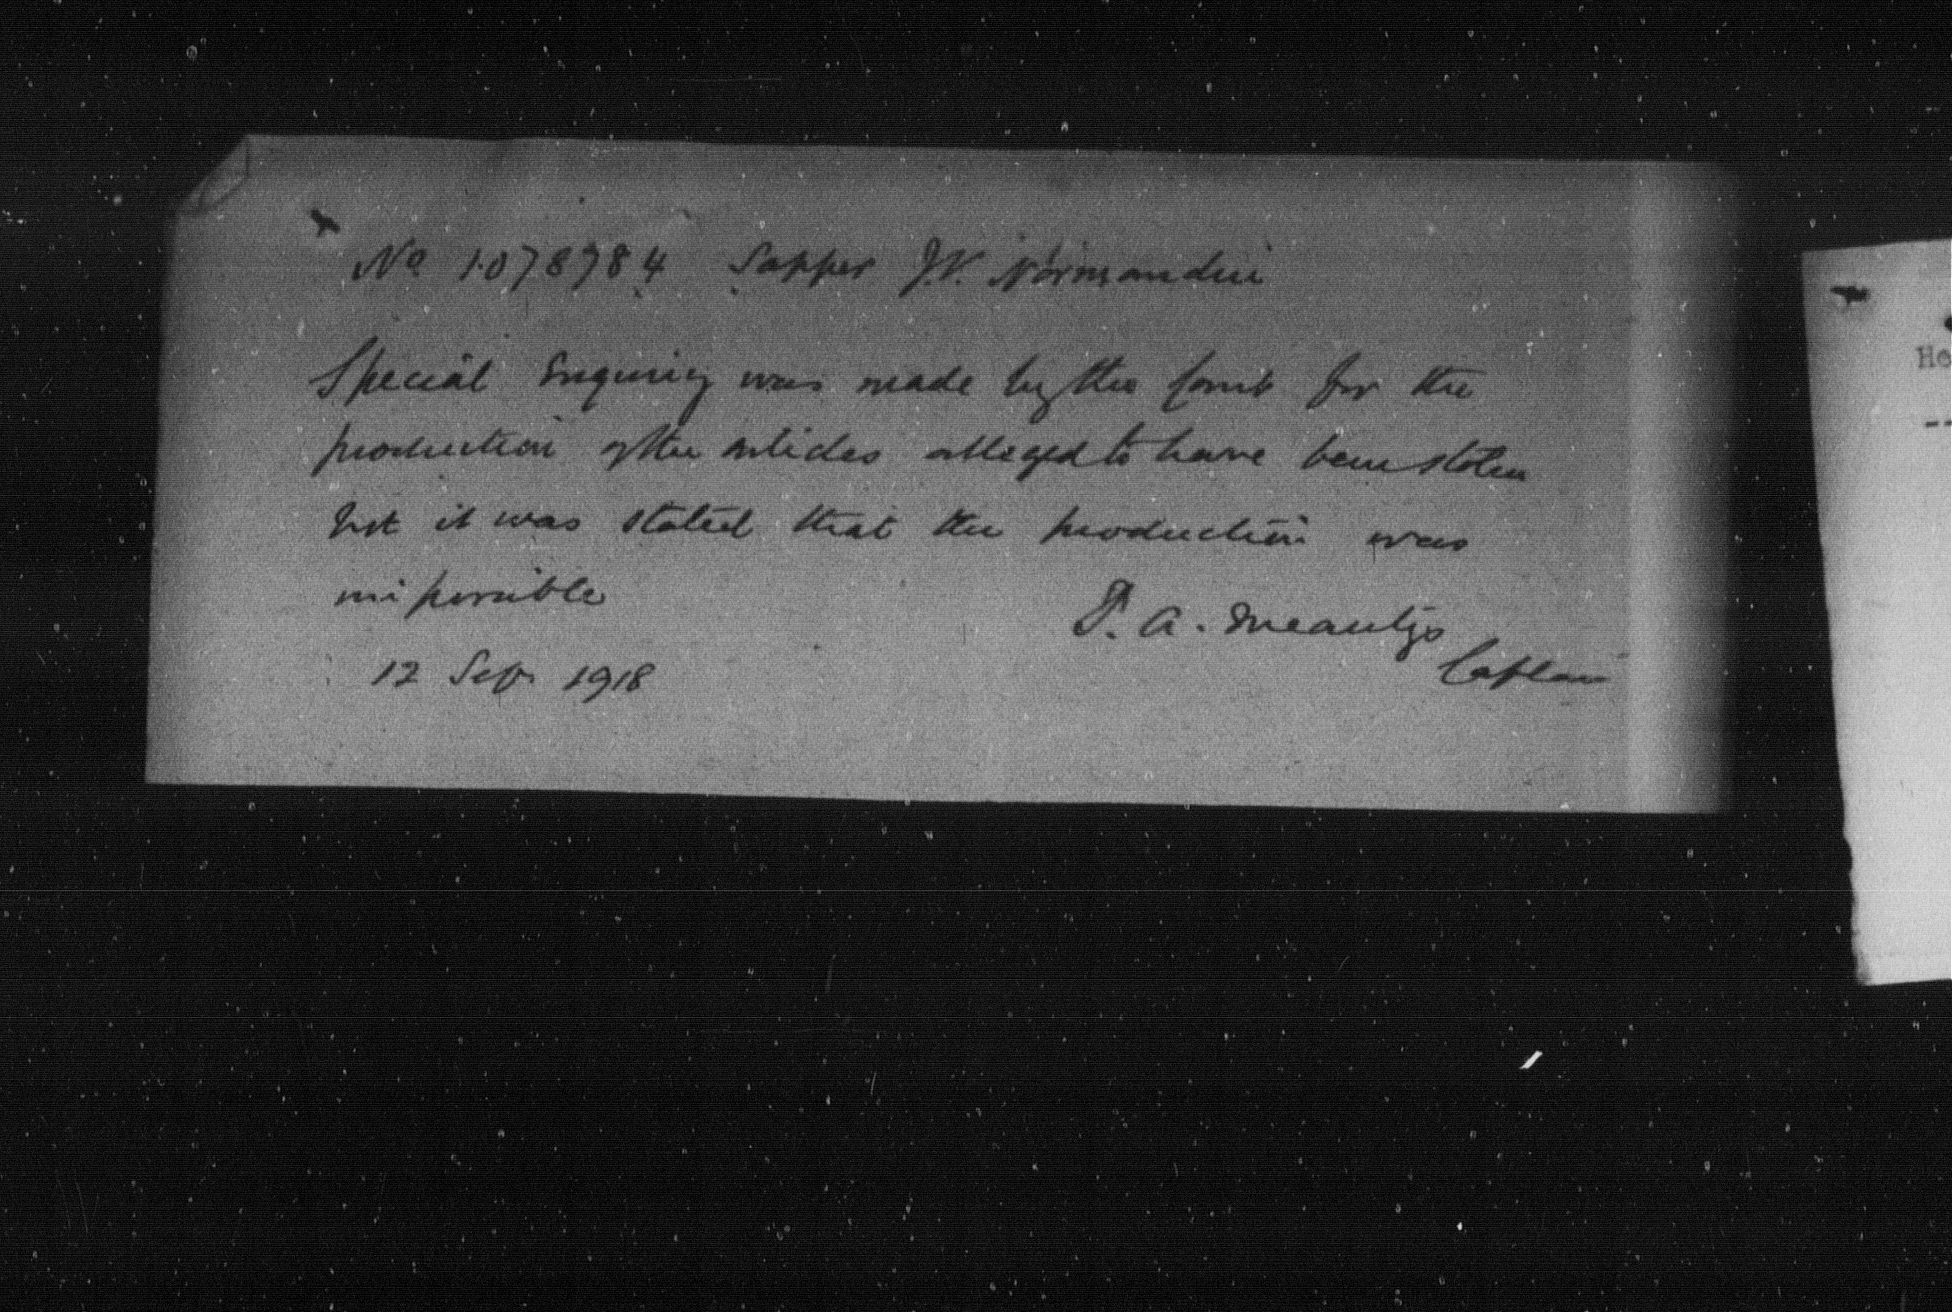 No 1078784 Sapper J.V. Normandin
Special Enquiry was made by the Court for the
production of the articles alleged to have been stolen
but it was stated that the production was
impossible
P. A. Meautys
Captain
12 Sep. 1918
He
--